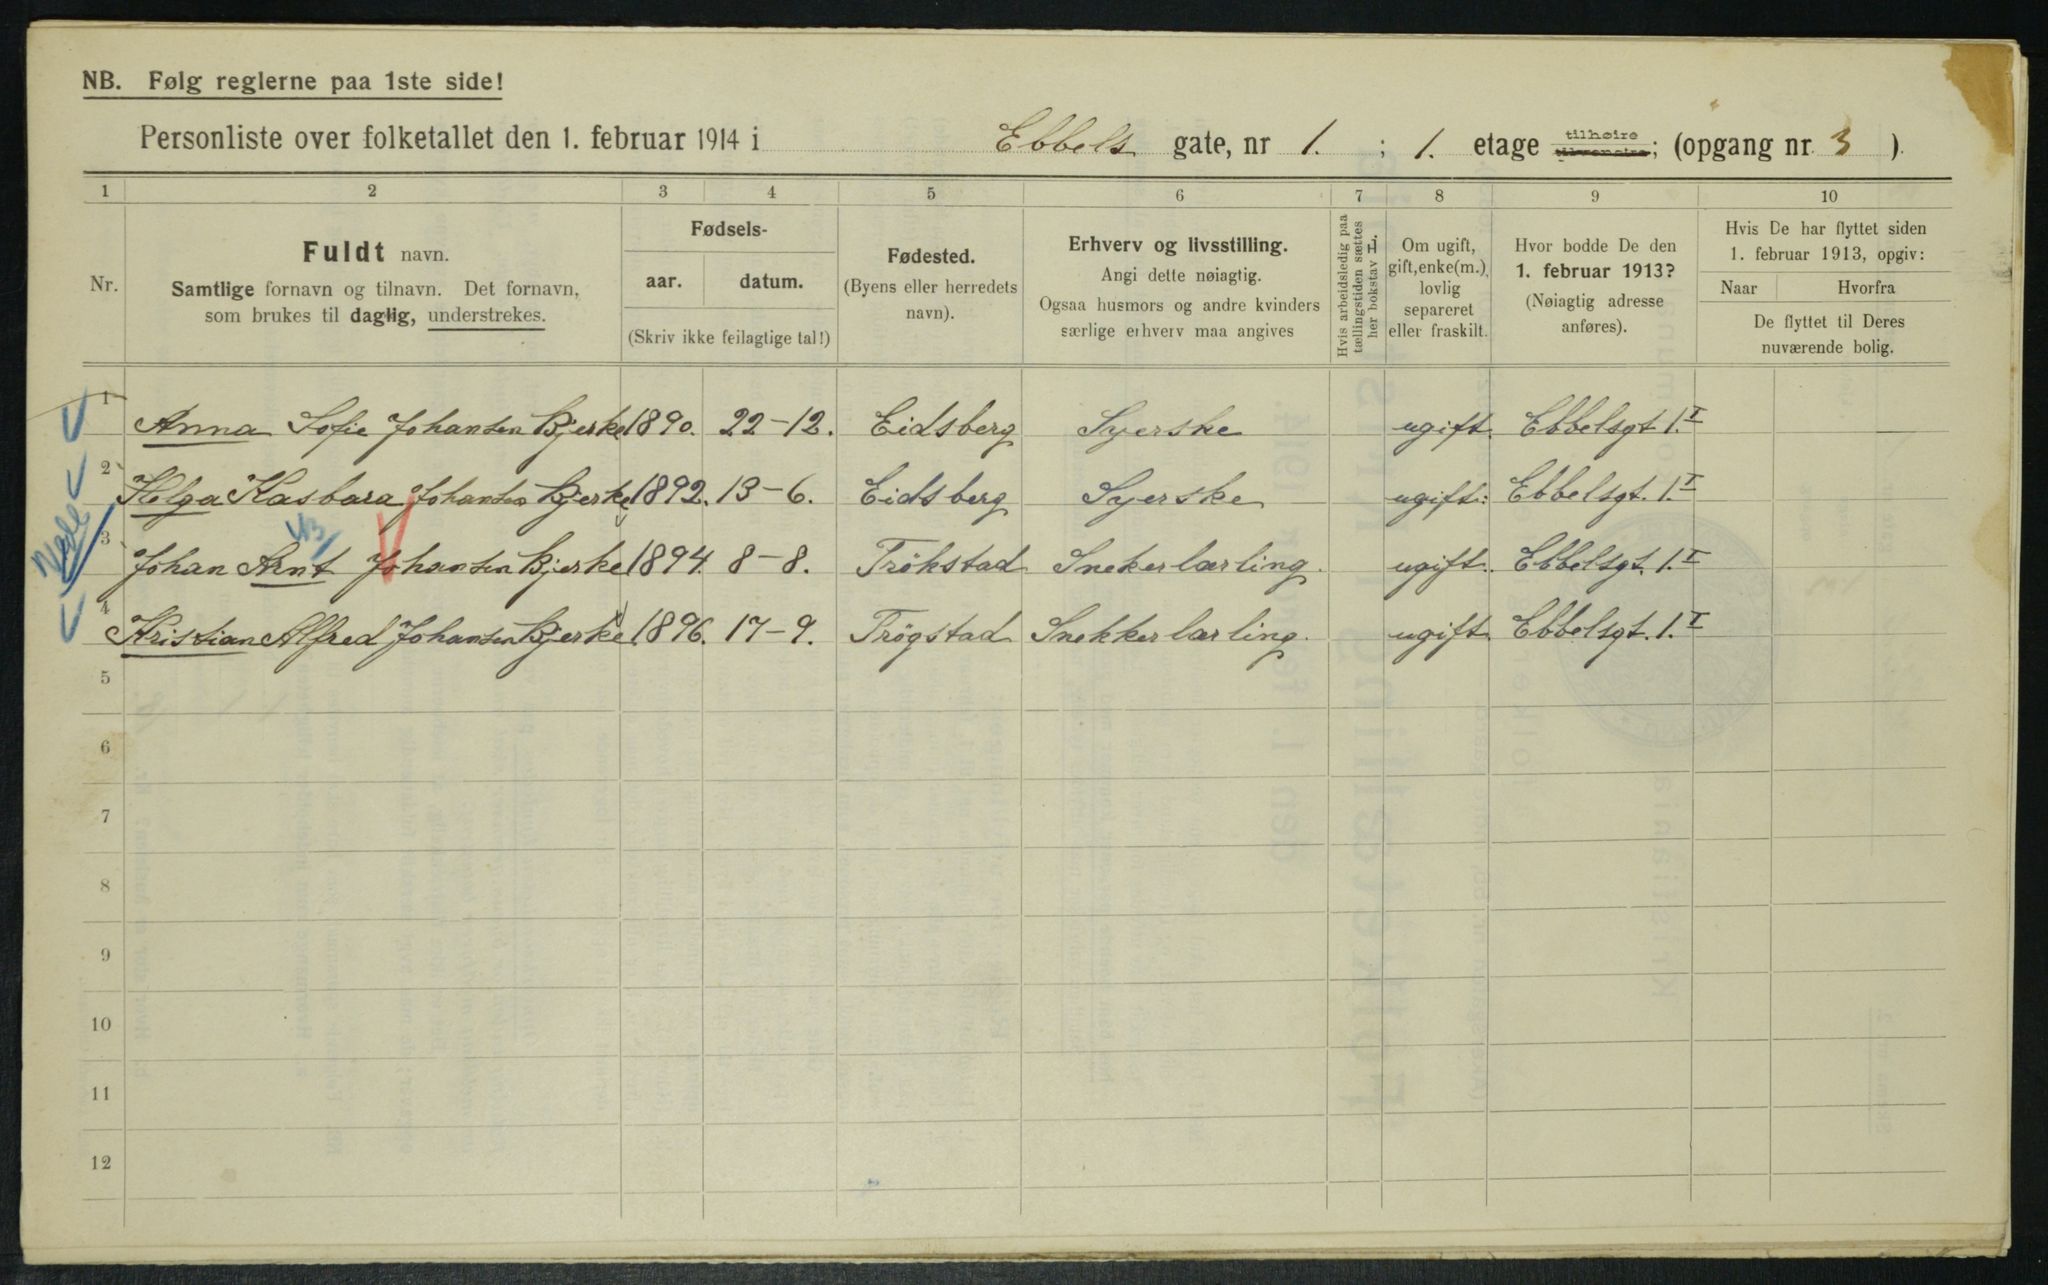 NB. Følg reglerne paa 1ste side!
Personliste over folketallet den 1. februar 1914 i Ebbels gate, nr 1. ; 1. etage tilhøire ; (opgang nr 3 ).
1 2 3 4 5 6 7 8 9 10
Nr.
Fuldt navn.
Samtlige fornavn og tilnavn. Det fornavn,
som brukes til daglig, understrekes.
Fødsels-
aar. datum.
(Skriv ikke feilagtige tal!)
Fødested.
(Byens eller herredets
navn).
Erhverv og livsstilling.
Angi dette nøiagtig.
Ogsaa husmors og andre kvinders
særlige erhverv maa angives
Hvis arbeidsledig paa
tællingstiden sættes
her bokstav L.
Om ugift,
gift, enke(m.),
lovlig
separeret
eller fraskilt.
Hvor bodde De den
1. februar 1913?
(Nøiagtig adresse
anføres).
Hvis De har flyttet siden
1. februar 1913, opgiv:
Naar Hvorfra
De flyttet til Deres
nuværende bolig.
1 Anna Sofie Johansen Bjerke 1890. 22-12. Eidsberg Syerske ugift. Ebbelsgt 1.I
2 Helga Kasbara Johansen Bjerke 1892. 13-6. Eidsberg Syerske ugift. Ebbelsgt. 1.I
3 Johan Arnt Johansen Bjerke 1894. 8-8. Trøkstad Snekerlærling. ugift. Ebbelsgt. 1.I
4 Kristian Alfred Johansen Bjerke 1896. 17-9. Trøgstad Snekkerlærling. ugift. Ebbelsgt. 1.I
5
6
7
8
9
10
11
12